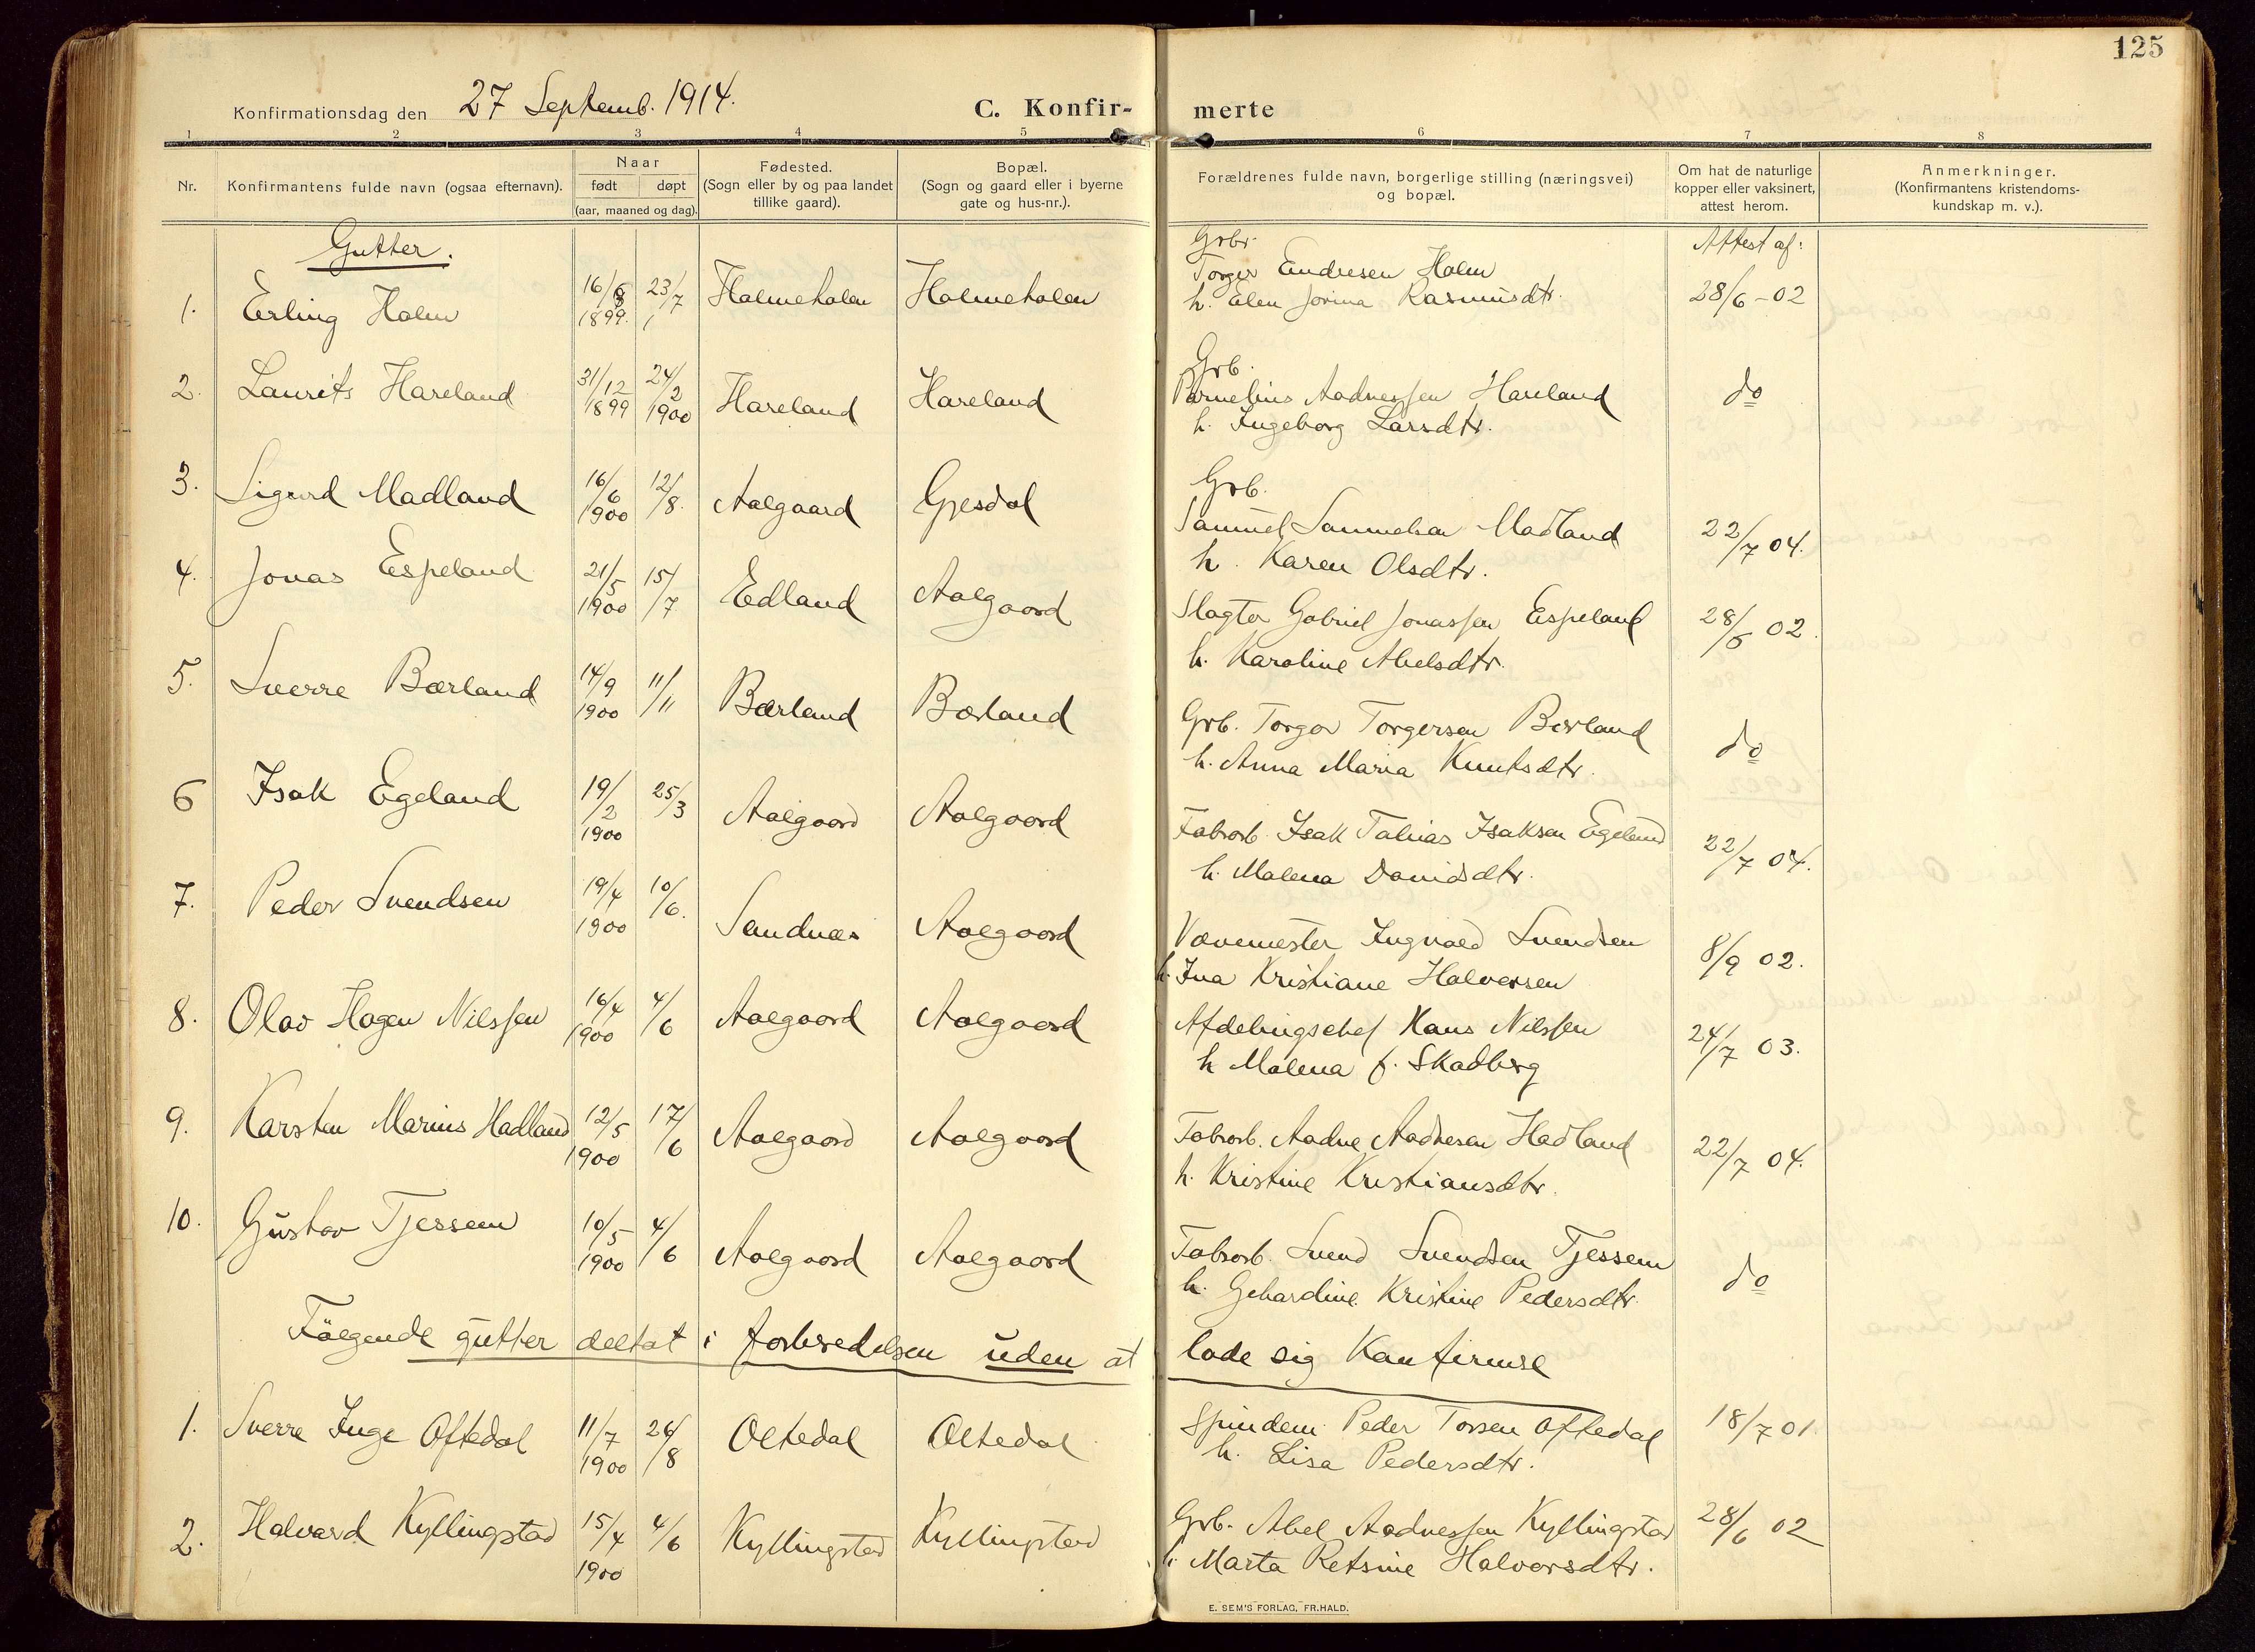 125
Konfirmationsdag den 27 Septemb. 1914.
C. Konfir-merte
1 2 3 4 5 6 7 8
Nr.
Konfirmantens fulde navn (ogsaa efternavn).
Naar
født døpt
(aar, maaned og dag).
Fødested.
(Sogn eller by og paa landet
tillike gaard).
Bopæl.
(Sogn og gaard eller i byerne
gate og hus-nr.).
Forældrenes fulde navn, borgerlige stilling (næringsvei)
og bopæl.
Om hat de naturlige
kopper eller vaksinert,
attest herom.
Anmerkninger.
(Konfirmantens kristendoms-
kundskap m. v.).
Gutter.
Attest af:
1. Erling Holm 16/6 1899. 23/7 Holmeholen Holmeholen
Grbr.
Torger Endresen Holm
h. Elen Jorina Rasmusdtr. 28/6-02
2. Laurits Hareland 31/12 1899 24/2 1900 Hareland Hareland
Grb.
Aadnessen Hareland
h. Ingeborg Larsdtr. do
3. Sigurd Madland 16/6 1900 12/8. Aalgaard Gjesdal
Grb.
Samuel Samuelsen Madland
h. Karen Olsdtr. 22/7 04.
4. Jonas Espeland 21/5 1900 15/7 Edland Aalgaard
Slagter Gabriel Jonassen Espeland
h. Karoline Abelsdtr. 28/6 02.
5. Sverre Bærland 14/9 1900 11/11 Bærland Bærland
Grb. Torger Torgersen Bærland
h. Anna Maria Knutsdtr. do
6 Isak Egeland 19/2 1900 25/3 Aalgaard Aalgaard
Fabrarb. Isak Tobias Isaksen Egeland
h. Malena Davidsdtr. 22/7 04.
7. Peder Svendsen 19/4 1900 10/6. Sandnæs Aalgaard
Vævemester Ingvald Svendsen
h. Ina Kristiane Halversen 8/9 02.
8. Olav Hagen Nilssen 16/4 1900 4/6 Aalgaard Aalgaard
Afdelingschef Hans Nilssen
h Malena f. Skadberg 24/7 03.
9. Karsten Marius Hadland 12/5 1900 17/6 Aalgaard Aalgaard
Fabrarb. Aadne Aadnesen Hadland
h. Kristine Kristiansdtr. 22/7 04.
10. Gustav Tjessem 10/5 1900 4/6 Aalgaard Aalgaard
Fabrarb. Svend Svendsen Tjessem
h. Gehardine Kristine Pedersdtr. do
Følgende gutter deltat i forberedelsen uden at lade sig konfirmere
1. Sverre Inge Oftedal 11/7 1900 26/8 Oltedal Oltedal
Spindem. Peder Torsen Oftedal
h. Lisa Pedersdtr. 18/7 01.
2. Halvard Kyllingstad 15/4 1900 4/6 Kyllingstad Kyllingstad
Grb. Abel Aadnessen Kyllingstad
h. Marta Retsine Halvorsdtr. 28/6 02
E. SEM'S FORLAG, FR.HALD.